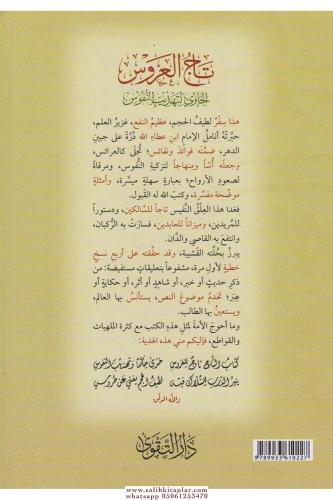 تاج العروس
الحاوي لتهذيب النفوس
هذا سِفْرٌ لطيفُ الحجم، عظيمُ النفع، غزيرُ العلم،
حبَّرتْهُ أناملُ الإمام ابن عطاء الله دُرَّةً على جبين
الدهر، ضمَّنَهُ فوائدَ ونفائس؛ تُجلى كالعرائس،
وجعلَه أُسّاً ومِنهاجاً لتزكية النُّفوس، ومرقاةً
لصعودِ الأرواح؛ بعبارةٍ سهلةٍ ميسَّرة، وأمثلةٍ
موضِّحة مفسِّرة، وكتبَ الله له القَبول.
فغدا هذا العِلْقُ النَّفيس تاجاً للسَّالكين، ودستوراً
للمُريدين، وميزاناً للعابدين، فسارَتْ به الرُّكبان،
وانتفعَ به القاصي والدَّان.
يبرزُ بحُلَّته القَشيبة، وقد حقَّقته على أربع نسخٍ
خطيةٍ لأول مرة، مشفوعاً بتعليقاتٍ مستفيضة: من
ذكرِ حديثٍ أو خبر، أو شاهدٍ أو أثر، أو حكايةٍ أو
عِبَر؛ تَخدمُ موضوعَ النص، يستأنسُ بها العالم،
ويستعينُ بها الطالب.
وما أحوجَ الأمةَ لمثلِ هذه الكتب مع كثرة الملهيات
والقواطع، فإليكم مني هذه الهدية:
كتاب التاج تاج للعروس
حوى حكما وتهذيب النفوس
ينير الدرب للسلاك
لطيف الحجم يغني عن دروس
والله الموفق
دار التقوى
9 789933 610227
www.salihkitaplar.com
whatsapp 05061253470